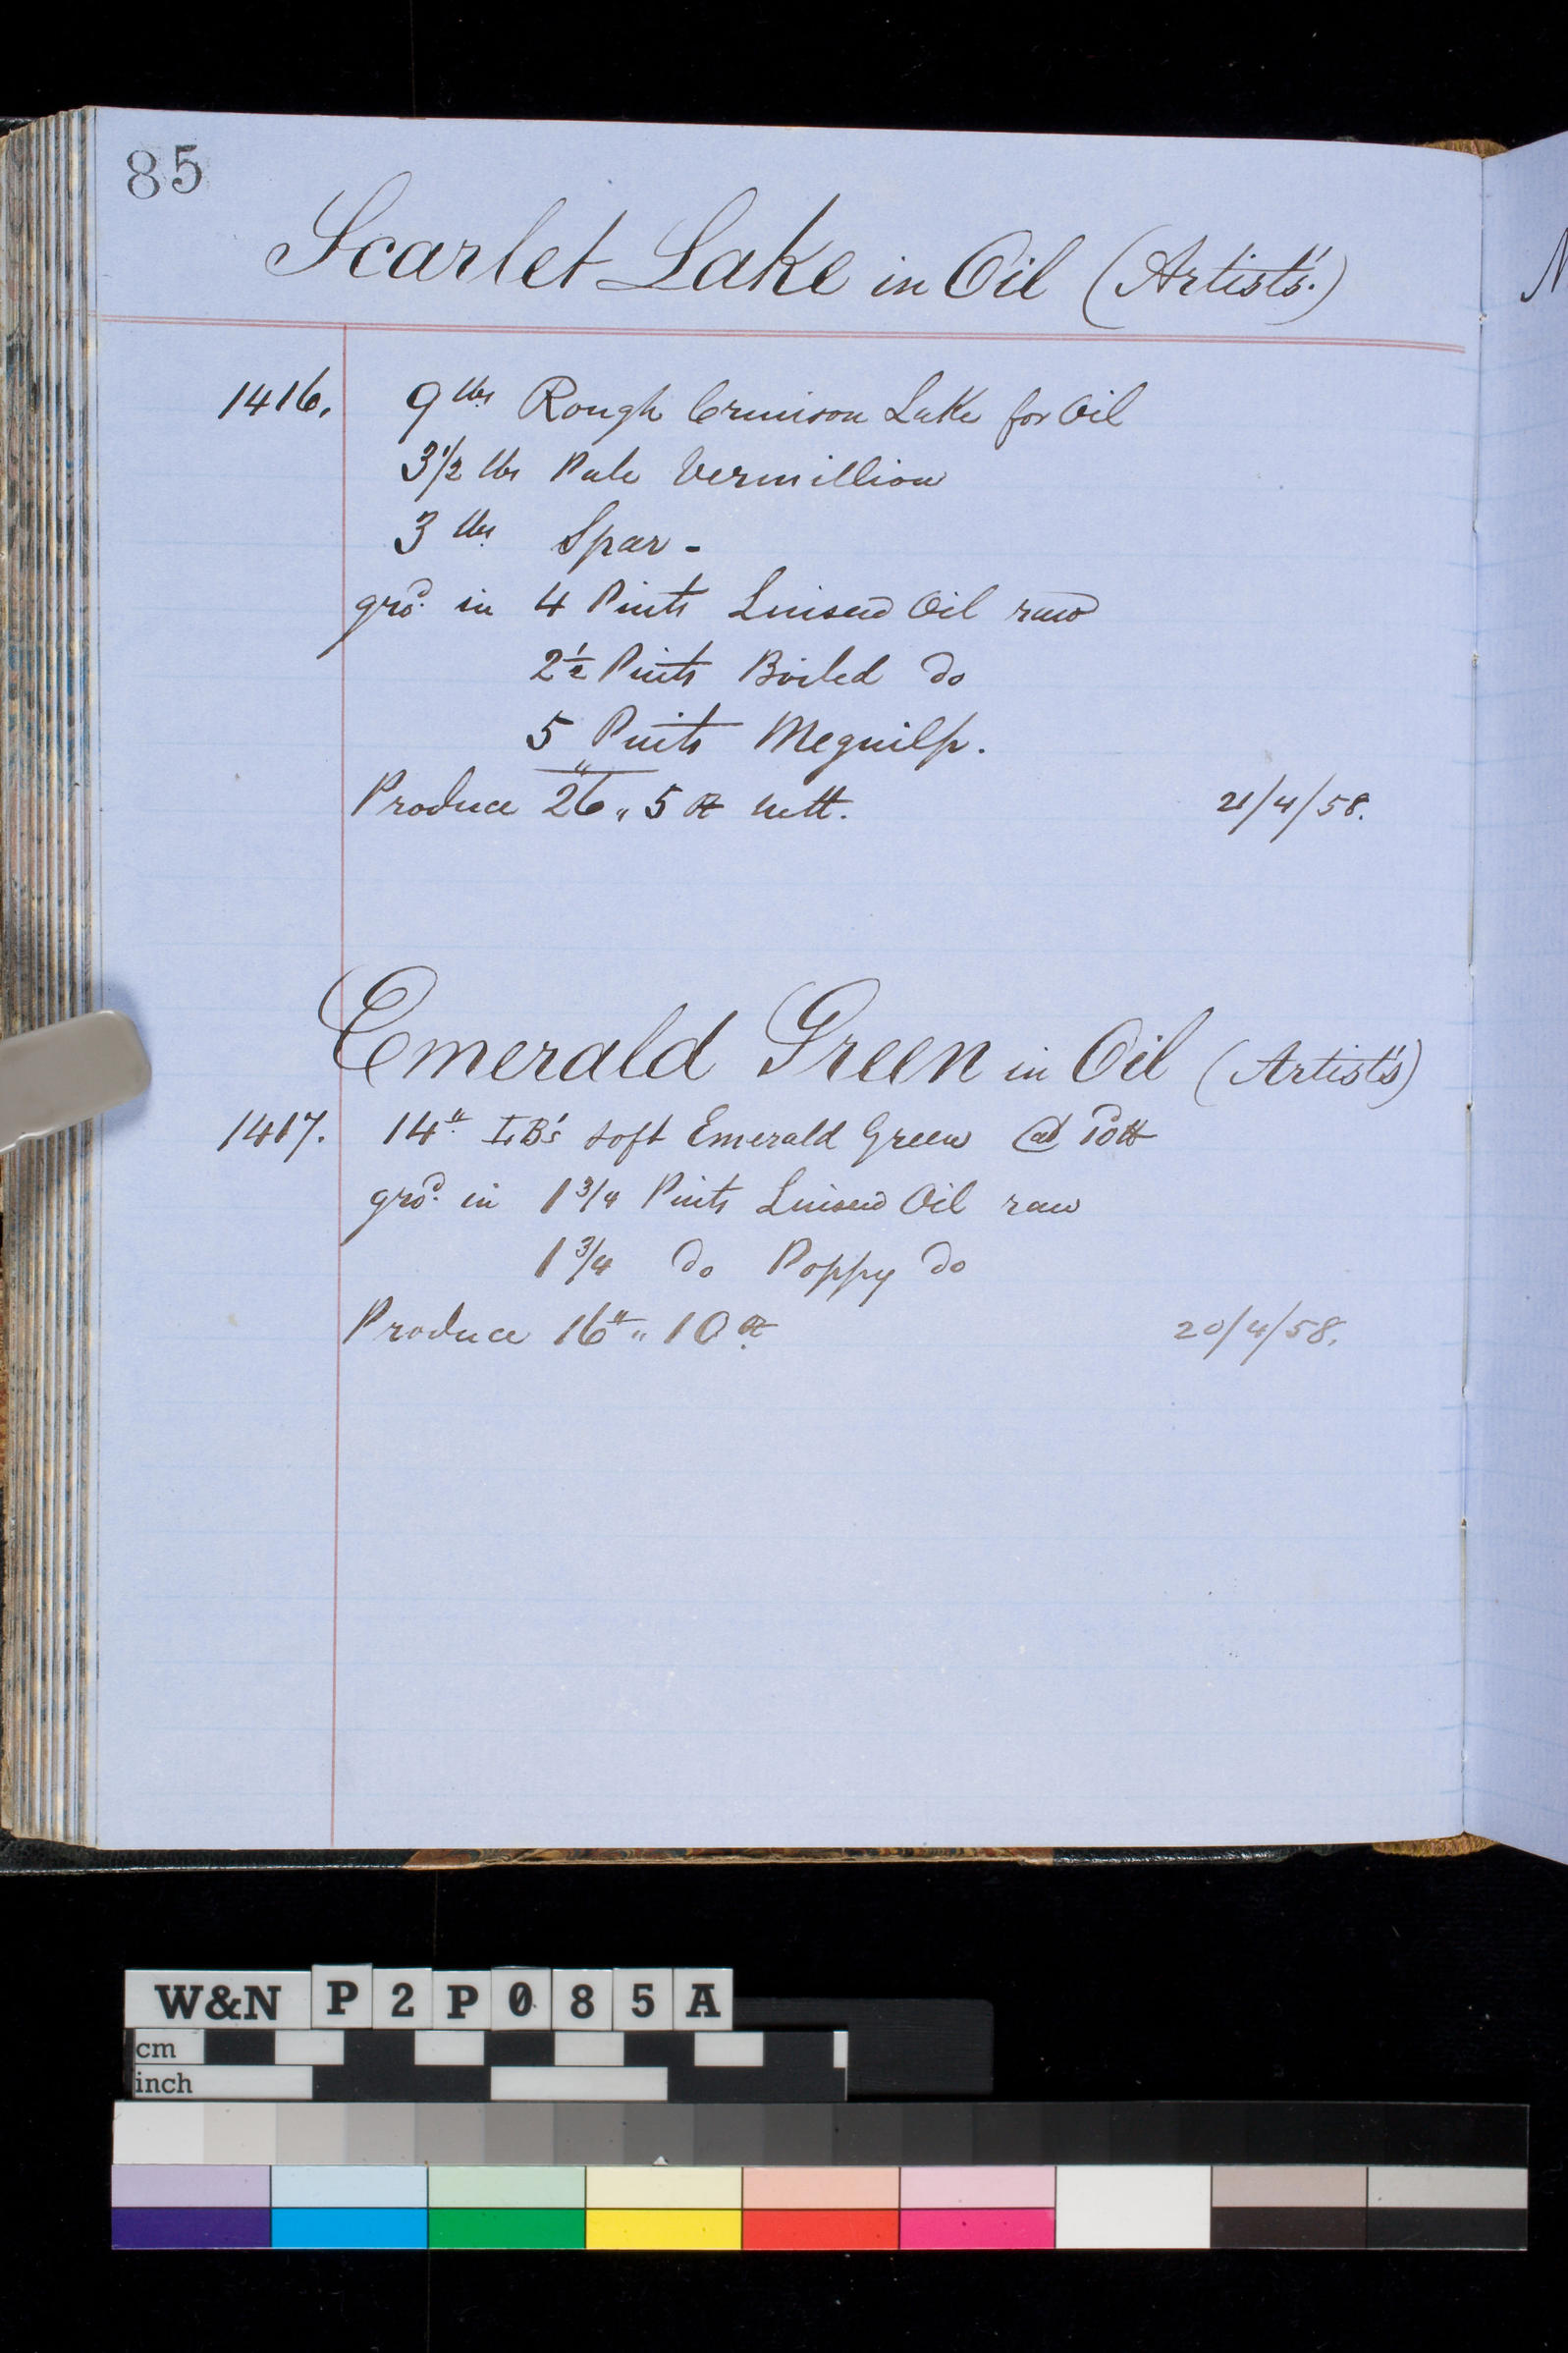 85
Scarlet Lake in Oil (Artists'.)
1416. 9 lbs Rough Crimson Lake for Oil
3 1/2 lbs Pale Vermillion
3 lbs Spar -
gro^d. in 4 Pints Linseed Oil raw
2 1/2 Pints Boiled do
5 Pints Meguilp.
Produce 26 " 5 oz nett. 21/4/58.
Emerald Green in Oil (Artist's)
1417. 14 " soft Emerald Green @
gro^d. in 1 3/4 Pints Linseed Oil raw
1 3/4 do Poppy do
Produce 16 " 10 oz 20/4/58.
N
W&N P2P085A
cm
inch